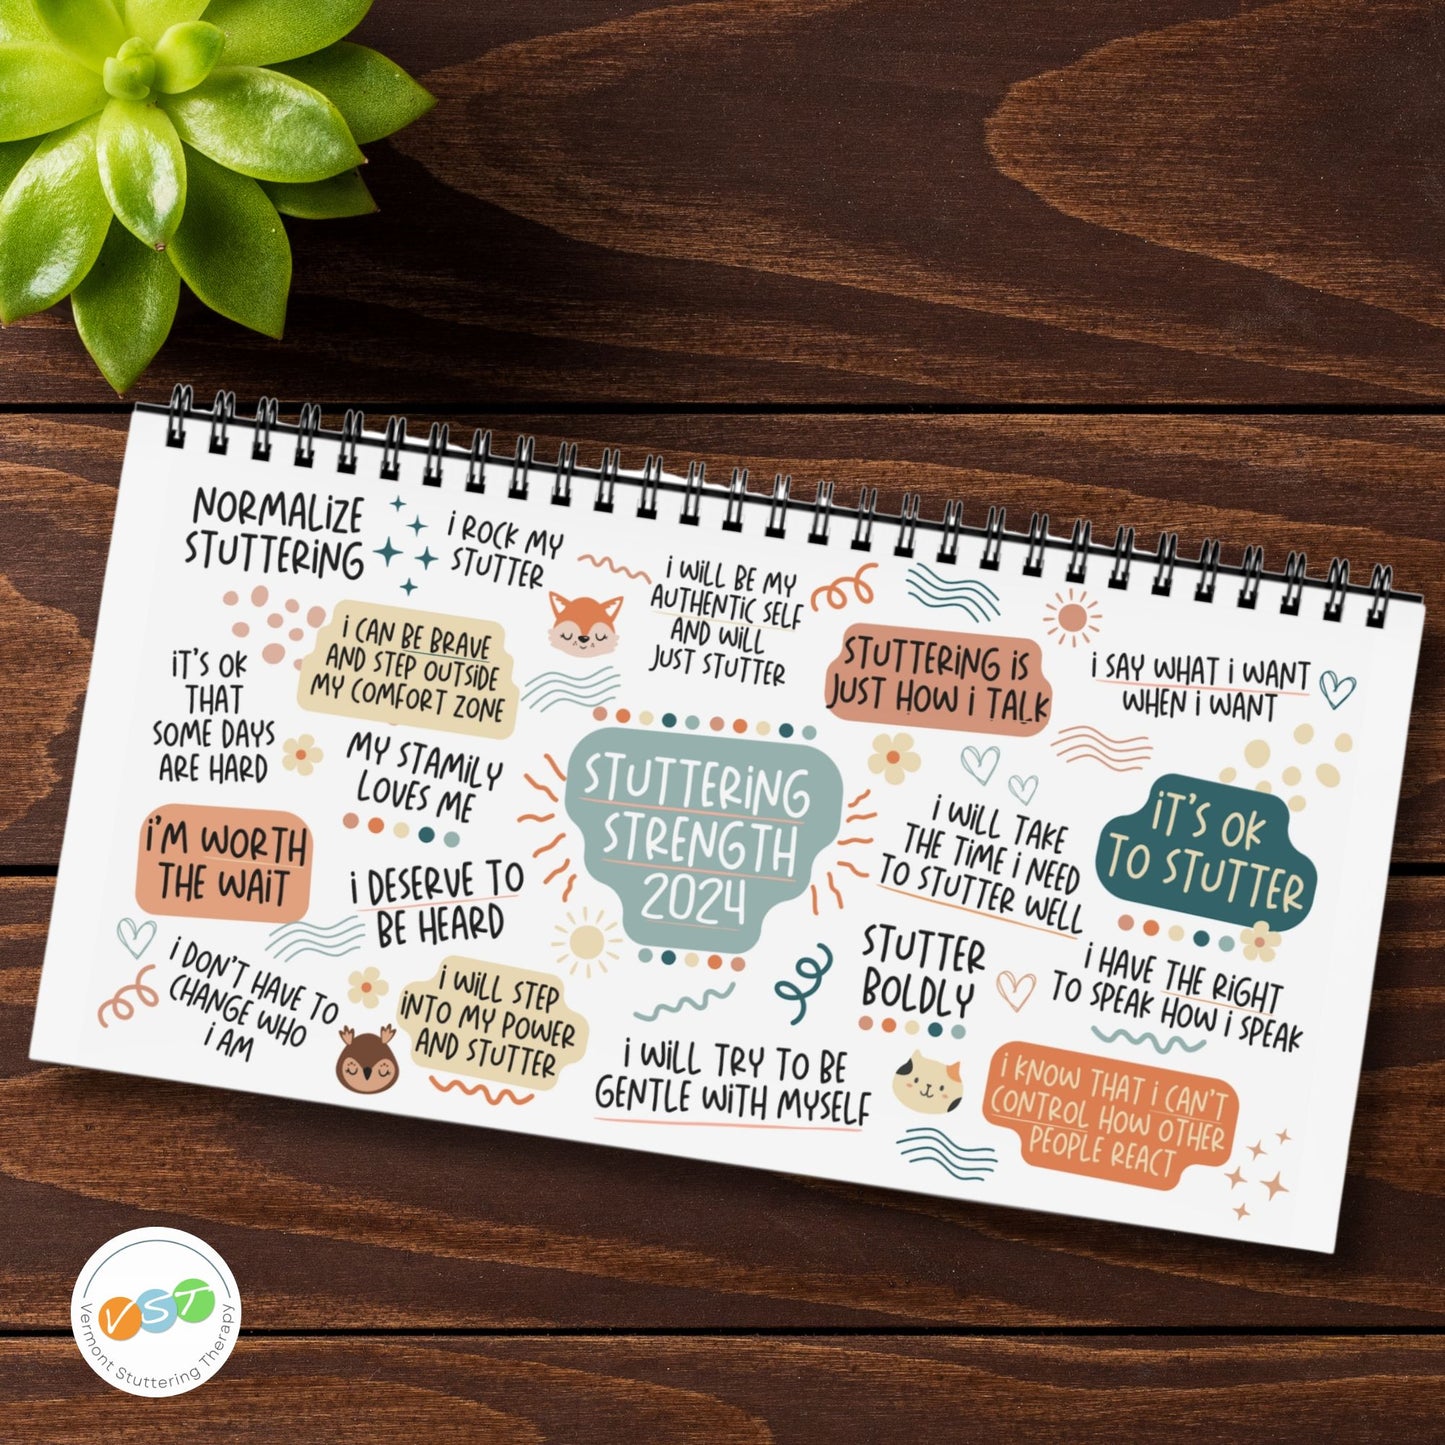 NORMALiZE
STUTTERiNG
i ROCK MY
STUTTER
i WiLL BE MY
AUTHENTiC SELF
AND WiLL
JUST STUTTER
STUTTERiNG iS
JUST HOW i TALK
i SAY WHAT i WANT
WHEN i WANT
i CAN BE BRAVE
AND STEP OUTSiDE
MY COMFORT ZONE
iT'S OK
THAT
SOME DAYS
ARE HARD
MY STAMiLY
LOVES ME
STUTTERiNG
STRENGTH
2024
i WiLL TAKE
THE TiME i NEED
TO STUTTER WELL
iT'S OK
TO STUTTER
i'M WORTH
THE WAiT
i DESERVE TO
BE HEARD
STUTTER
BOLDLY
i HAVE THE RiGHT
TO SPEAK HOW i SPEAK
i DON'T HAVE TO
CHANGE WHO
i AM
i WiLL STEP
iNTO MY POWER
AND STUTTER
i WiLL TRY TO BE
GENTLE WiTH MYSELF
i KNOW THAT i CAN'T
CONTROL HOW OTHER
PEOPLE REACT
VST
Vermont Stuttering Therapy